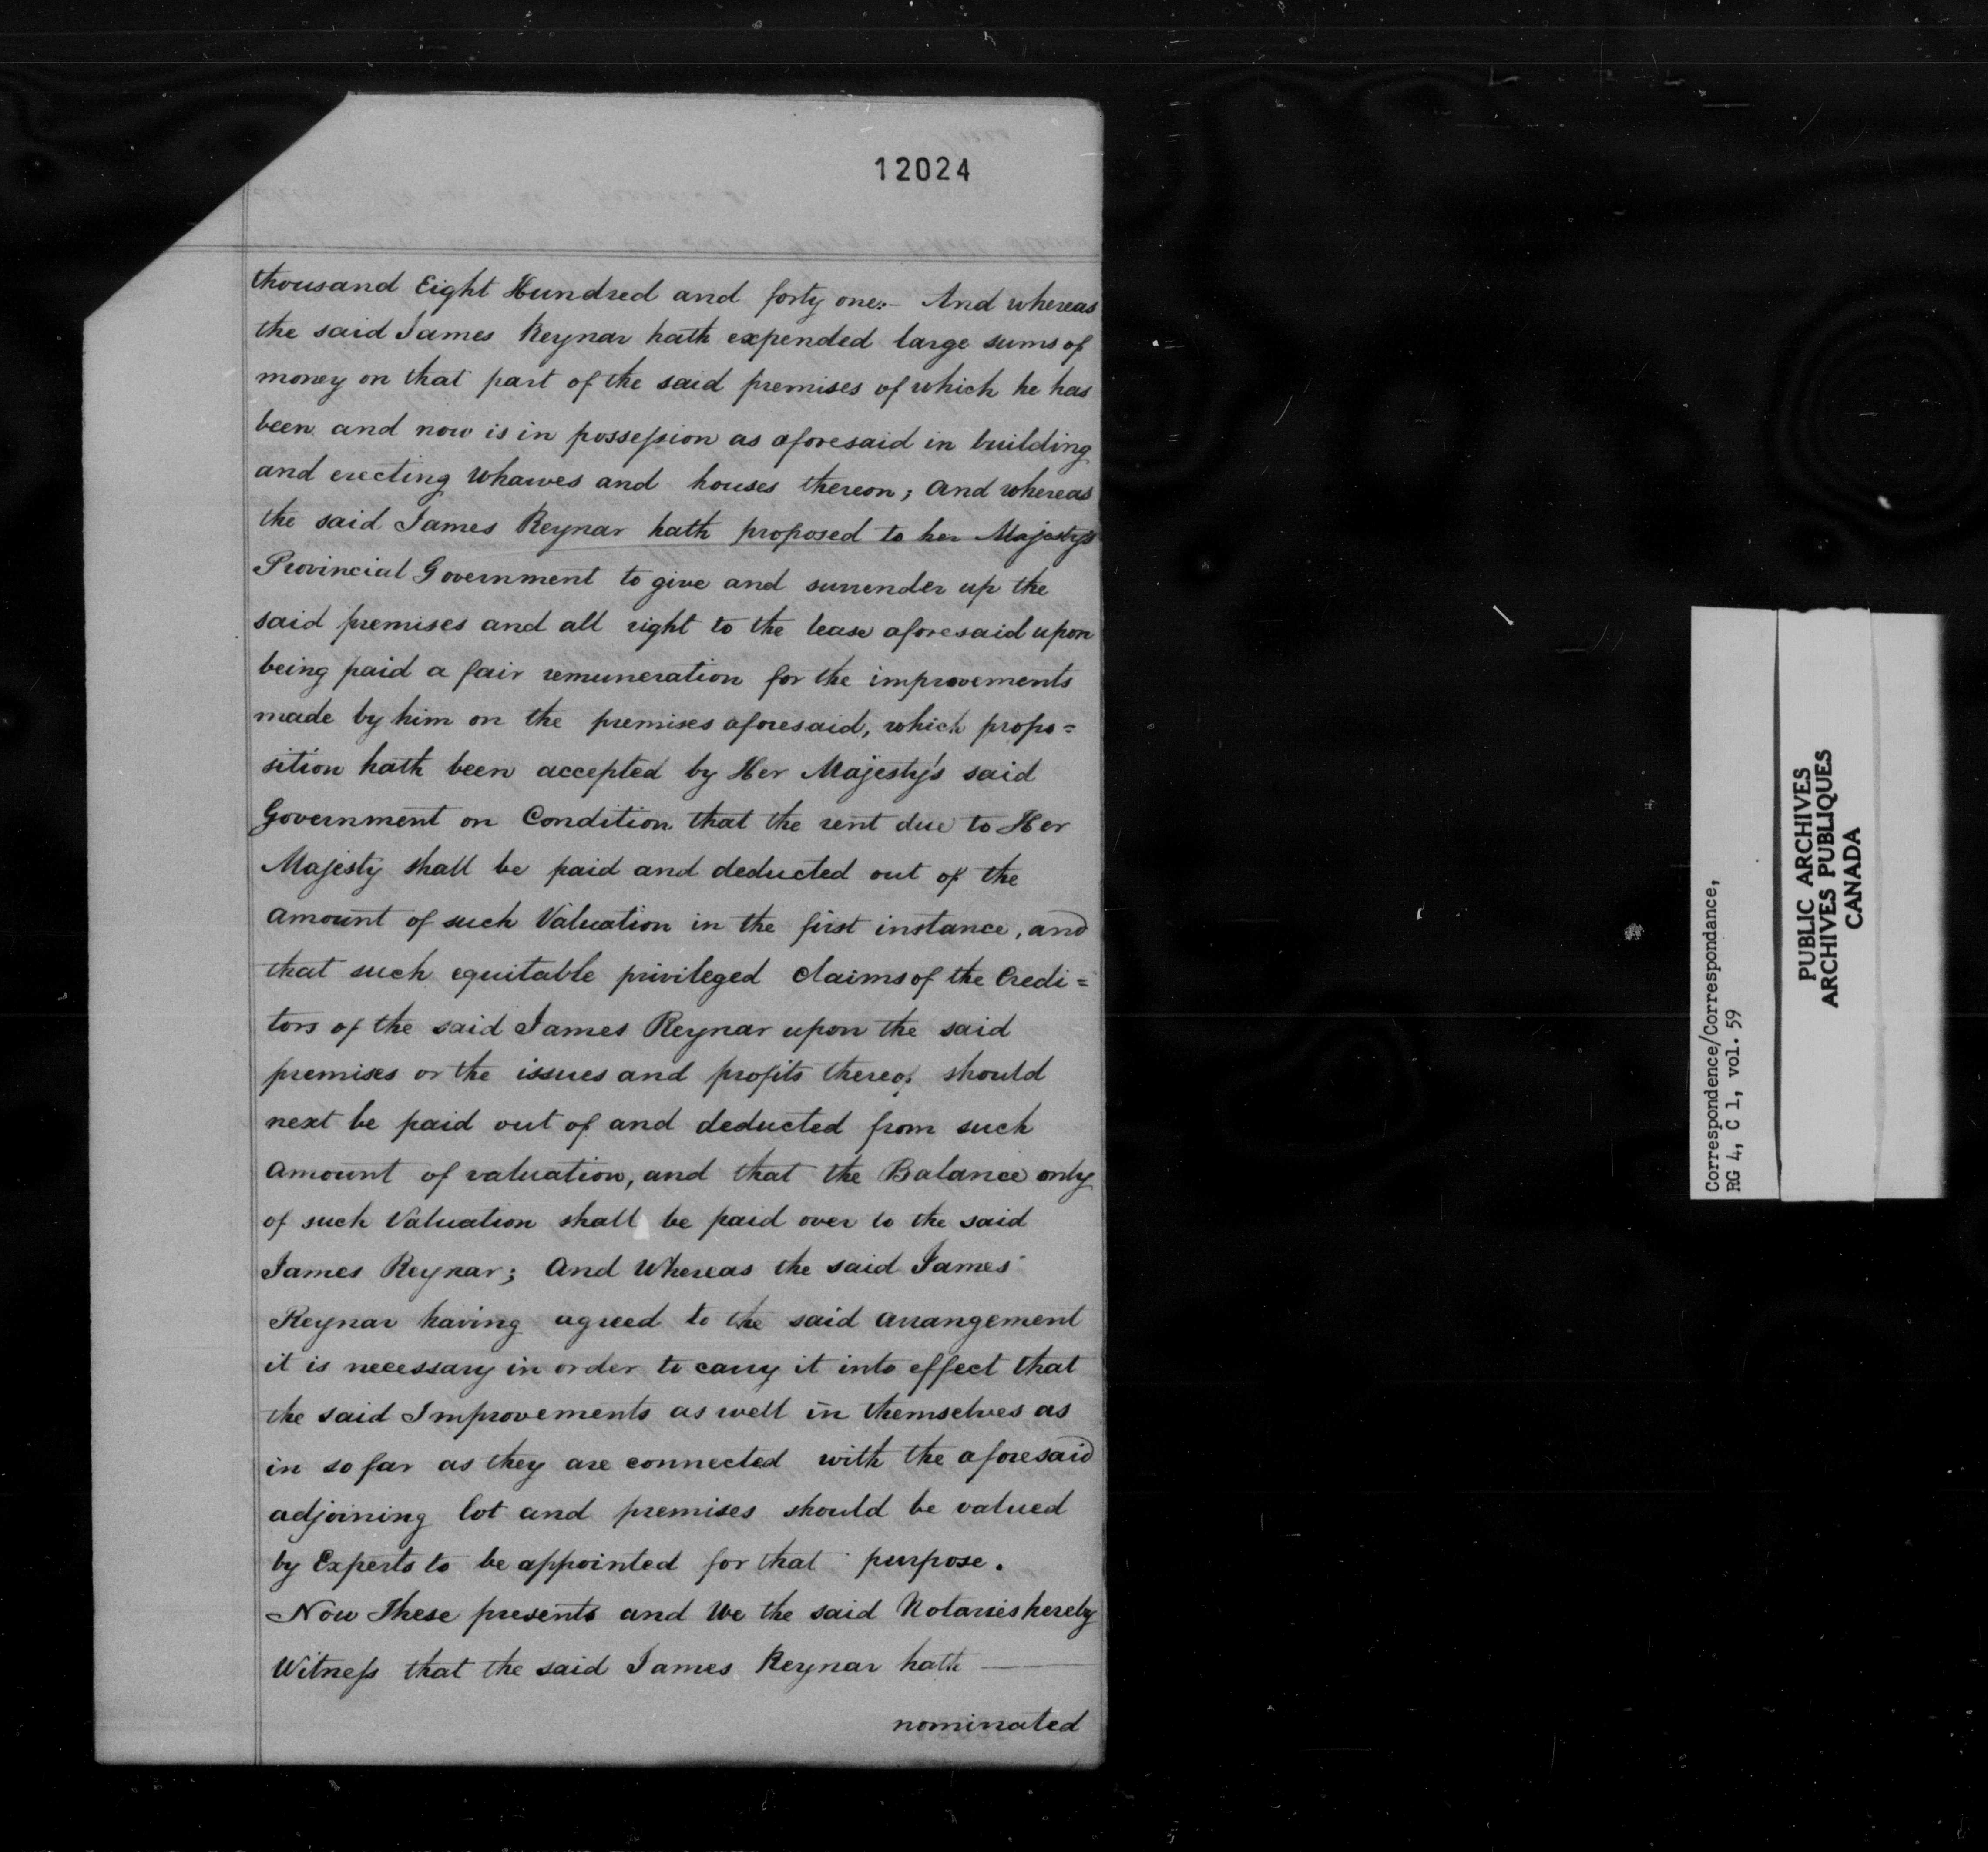 12024
thousand Eight Hundred and forty one:- And whereas
the said James Reynar hath expended large sums of
money on that part of the said premises of which he has
been and now is in possession as aforesaid in building
and erecting Wharves and houses thereon; And whereas
the said James Reynar hath proposed to her Majesty's
Provincial Government to give and surrender up the
said premises and all right to the lease aforesaid upon
being paid a fair remuneration for the improvements
made by him on the premises aforesaid, which propo=
sition hath been accepted by Her Majesty's said
Government on Condition that the rent due to Her
Majesty shall be paid and deducted out of the
amount of such Valuation in the first instance, and
that such equitable privileged Claims of the Credi=
tors of the said James Reynar upon the said
premises or the issues and profits thereof should
next be paid out of and deducted from such
amount of valuation, and that the Balance only
of such Valuation shall be paid over to the said
James Reynar; And Whereas the said James
Reynar having agreed to the said arrangement
it is necessary in order to carry it into effect that
the said Improvements as well in themselves as
in so far as they are connected with the aforesaid
adjoining lot and premises should be valued
by Experts to be appointed for that purpose.
Now These presents and We the said Notaries hereby
Witness that the said James Reynar hath —
nominated
Correspondence/Correspondance,
RG 4, C 1, vol. 59
PUBLIC ARCHIVES
ARCHIVES PUBLIQUES
CANADA